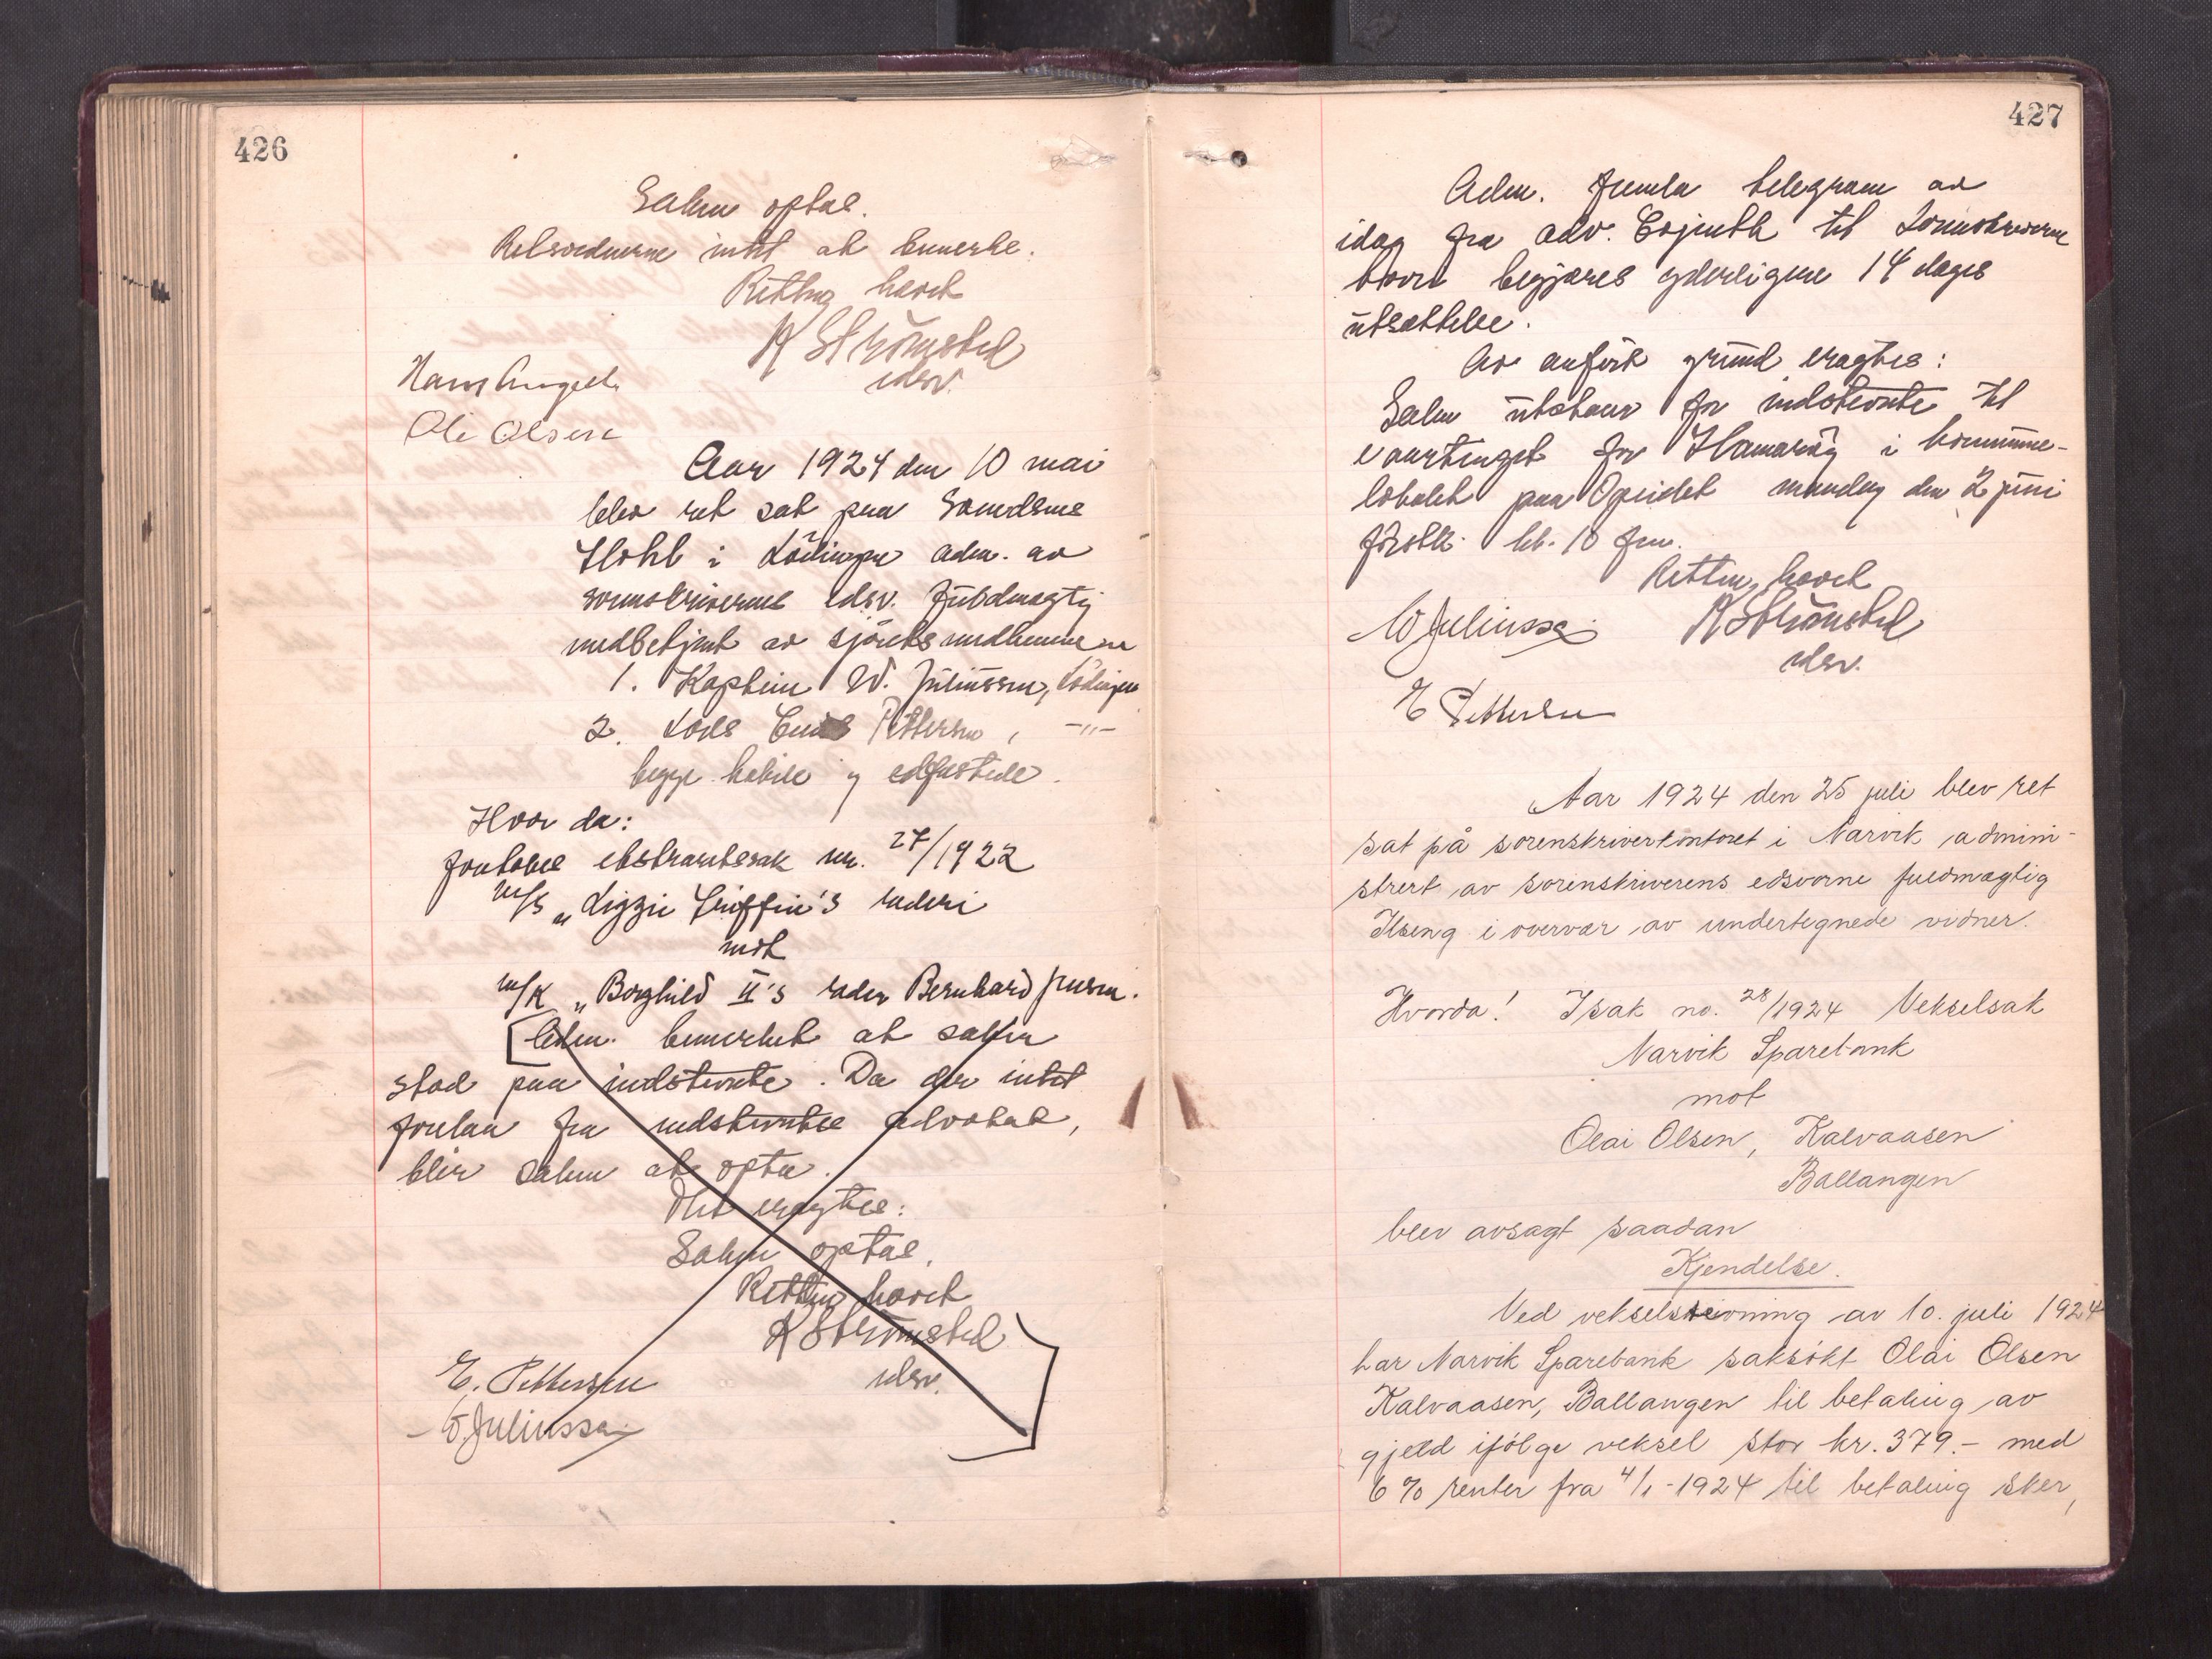 426
Saken optas.
Retsvidnerne intet at bemerke.
Retten hævet
K Strömsted
edsv.
Hans Angell
Ole Olsen
Aar 1924 den 10 mai
blev ret sat paa Samdsens
Hotel i Lödingen adm. av
sorenskriverens edsv. fuldmægtig
medbetjent av sjöretsmedlemmene
1. Kaptein W. Juliussen, Lödingen
2. Lods Emil Pettersen, -"-
begge habile og edfæstede.
Hvor da:
Foretokes ekstraretssak nr. 27/1922
m/s „Lizzie Griffin's rederi
mot
m/k „Borghild II's reder Bernhard Jensen.
Adm. bemerket at saken
stod paa indstevnte. Da der intet
forelaa fra indstevntes advokat,
blir saken at opta.
Det eragtes:
Saken optas.
Retten hævet
K Strömsted
edsv.
E. Pettersen
W. Juliussen
427
Adm. fremla telegram av
idag fra adv. Esjeuth til Sorenskriveren
hvori begjæres yderligere 14 dages
utsættelse.
Av anfört grund eragtes:
Saken utstaar for indstevnte til
vaartinget for Hamaröy i kommune-
lokalet paa Opeidet mandag den 2 juni
förstk. kl. 10 fm.
Retten hævet
W Juliussen K Strömsted
edsv.
E Pettersen
Aar 1924 den 25 juli blev ret
sat på sorenskriverkontoret i Narvik admini-
strert av sorenskriverens edsvorne fuldmægtig
Ilseng i overvær av undertegnede vidner.
Hvorda! I sak no. 28/1924 Vekselsak
Narvik Sparebank
mot
Olai Olsen, Kalvaasen
Ballangen
blev avsagt saadan
Kjendelse.
Ved vekselstevning av 10. juli 1924
har Narvik Sparebank saksökt Olai Olsen
Kalvaasen, Ballangen til betaling av
gjeld ifölge veksel stor kr. 379.- med
6 % renter fra 4/1-1924 til betaling sker,